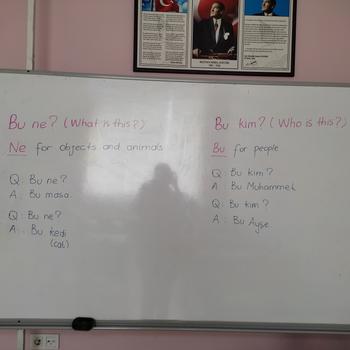 Bu ne? (What is this?)
Ne for objects and animals
Q: Bu ne?
A: Bu masa.
Q: Bu ne?
A: Bu kedi
(cat)
Bu kim? (Who is this?)
Bu for people
Q: Bu kim?
A: Bu Muhammet.
Q: Bu kim?
A: Bu Ayşe